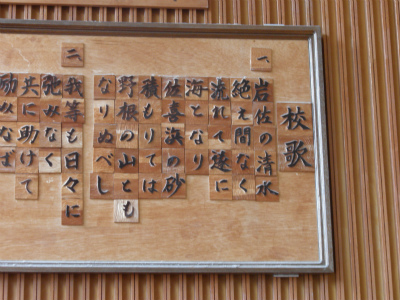 校歌
一、
岩佐の清水
絶え間なく
流れて遂に
海となり
佐喜浜の砂
積もりては
野根の山とも
なりぬべし
二、
我等も日々に
弛みなく
共に助けて
励みなば